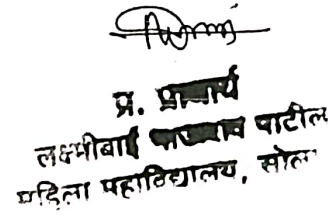 प्र. प्राचार्य
लक्ष्मीबाई भाऊराव पाटील
महिला महाविद्यालय, सोला